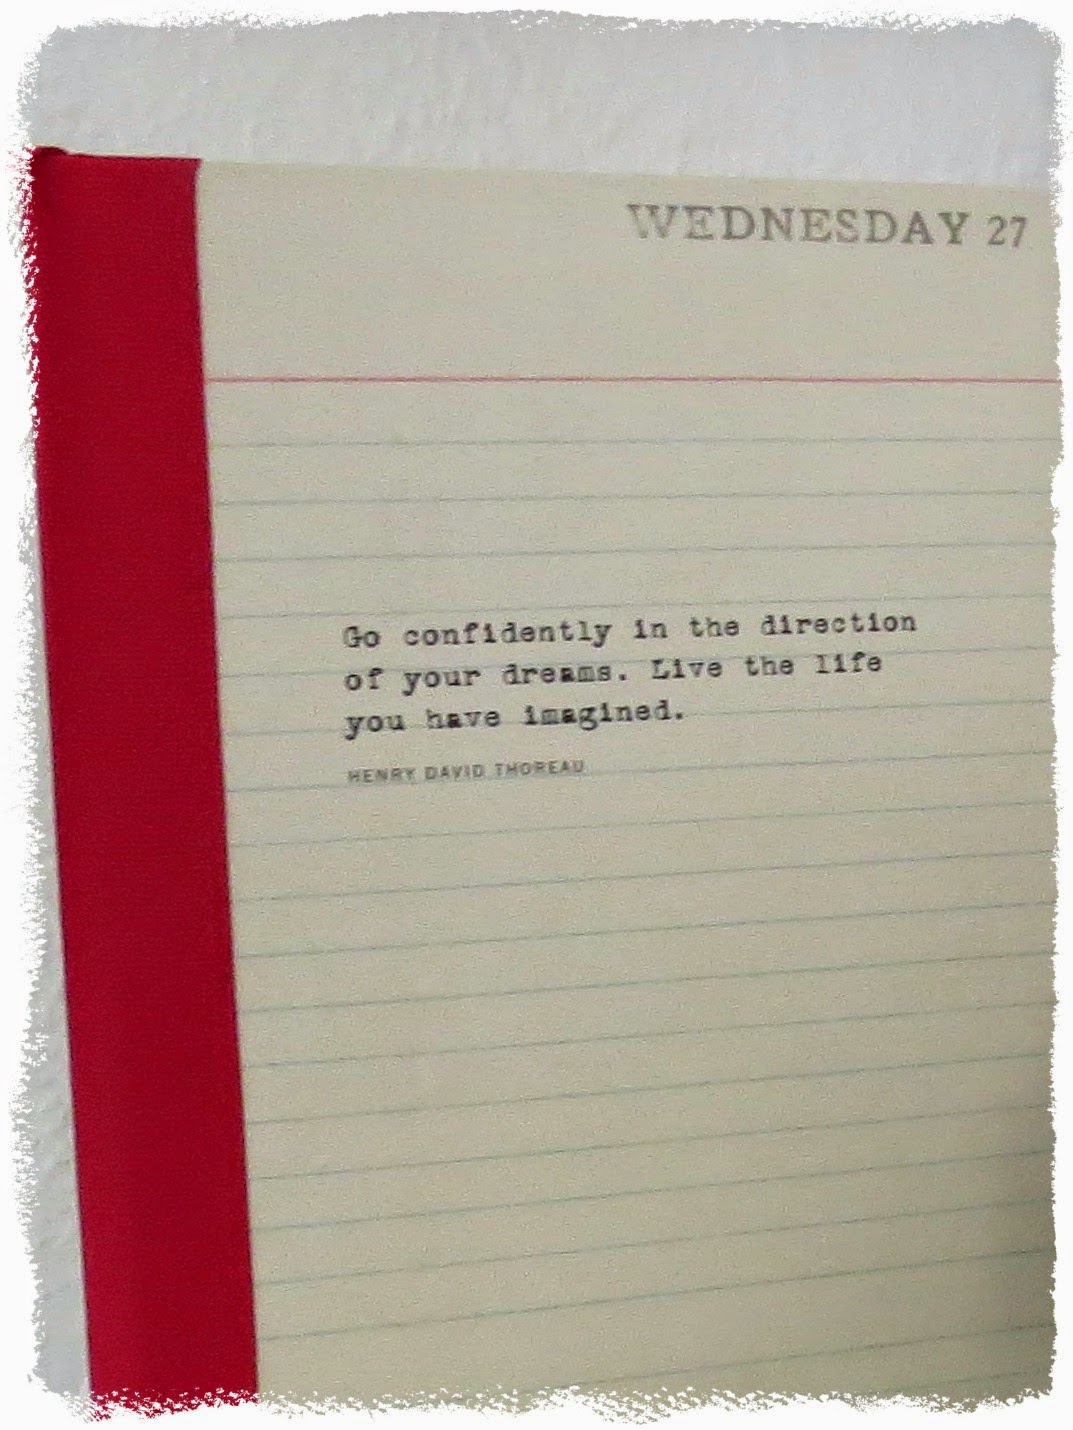 WEDNESDAY 27
Go confidently in the direction
of your dreams. Live the life
you have imagined.
HENRY DAVID THOREAU